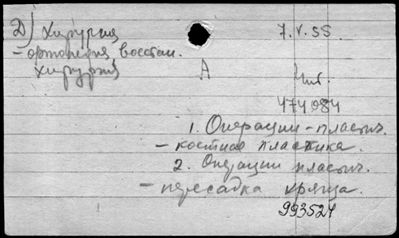 Д) Хирургия
7.V.55
- ортопедия восстан.
хирургия
А
Чит.
474984
1. Операции - пластич.
- костная пластика.
2. Операции пластич.
- пересадка хряща.
993524